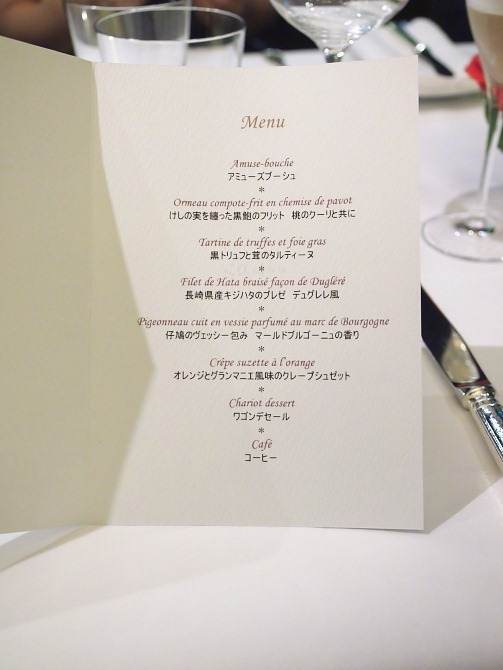 Menu
Amuse-bouche
アミューズブーシュ
*
Ormeau compote-frit en chemise de pavot
けしの実を纏った黒鮑のフリット 桃のクーリと共に
*
Tartine de truffes et foie gras
黒トリュフと茸のタルティーヌ
*
Filet de Hata braisé façon de Dugléré
長崎県産キジハタのブレゼ デュグレレ風
*
Pigeonneau cuit en vessie parfumé au marc de Bourgogne
仔鳩のヴェッシー包み マールドブルゴーニュの香り
*
Crêpe suzette à l'orange
オレンジとグランマニエ風味のクレープシュゼット
*
Chariot dessert
ワゴンデセール
*
Café
コーヒー